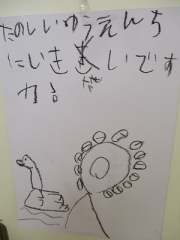 たのしいゆうえんち
にいきたいです
か!